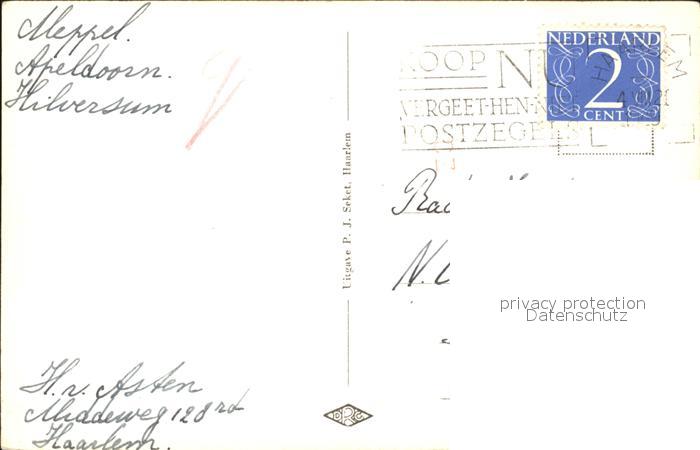 Meppel.
Apeldoorn.
Hilversum
KOOP NU
VERGEET-HEN-N
POSTZEGELS
NEDERLAND
2
CENT
HAARLEM
Uitgave P. J. Seket, Haarlem
N.
privacy protection
Datenschutz
H. v. Asten
128 rd
Haarlem.